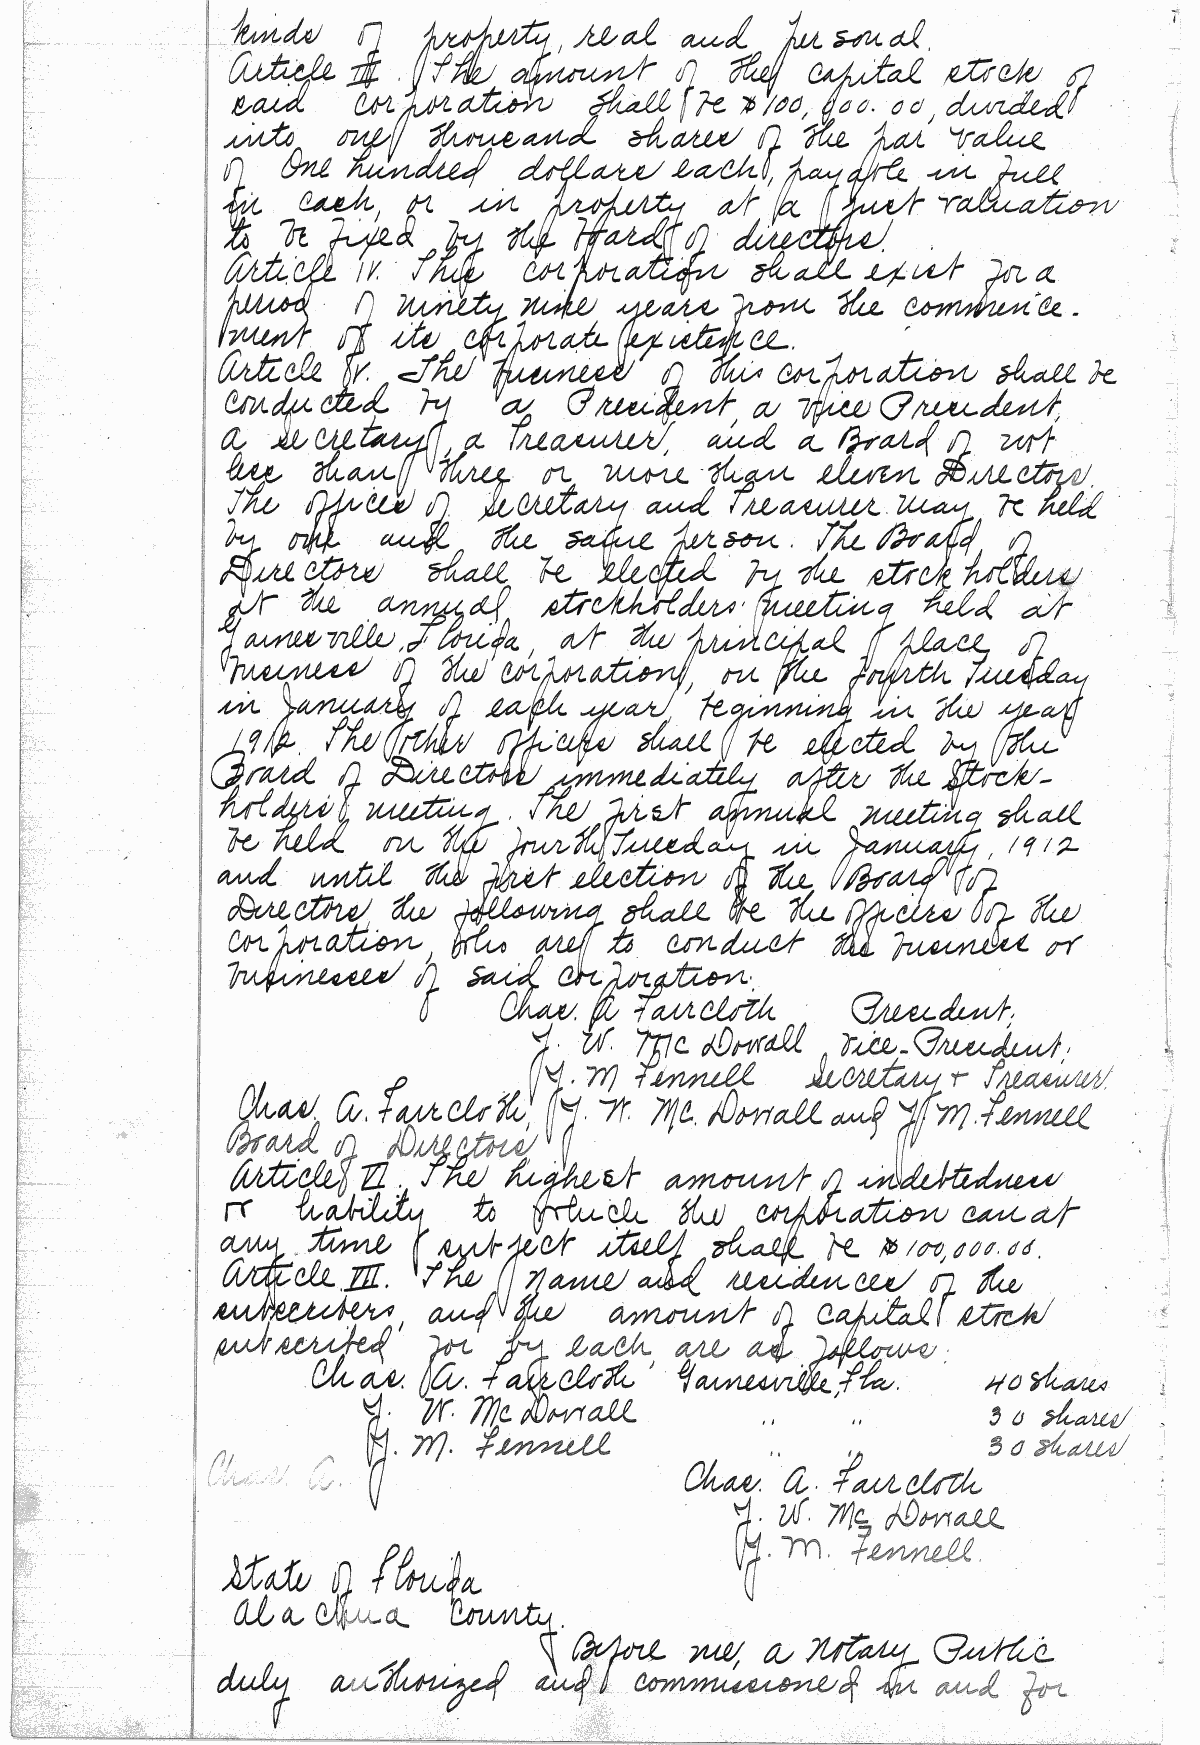 kinds of property, real and personal.
Article III. The amount of the capital stock of
said corporation shall be $100,000.00, divided
into one thousand shares of the par value
of One hundred dollars each, payable in full
in cash, or in property at a just valuation
to be fixed by the board of directors.
Article IV. This corporation shall exist for a
period of ninety nine years from the commence-
ment of its corporate existence.
Article V. The business of this corporation shall be
conducted by a President, a Vice President,
a Secretary, a Treasurer, and a Board of not
less than three or more than eleven Directors.
The offices of Secretary and Treasurer may be held
by one and the same person. The Board of
Directors shall be elected by the stock holders
at the annual stockholders' meeting held at
Gainesville, Florida, at the principal place of
business of the corporation, on the fourth Tuesday
in January of each year, beginning in the year
1912. The other officers shall be elected by the
Board of Directors immediately after the Stock-
holders' meeting. The first annual meeting shall
be held on the fourth Tuesday in January, 1912
and until the first election of the Board of
Directors, the following shall be the officers of the
corporation, who are to conduct the business or
businesses of said corporation:
Chas. A Faircloth President;
J. W. McDowall Vice-President;
J. M Fennell Secretary + Treasurer.
Chas. A. Faircloth, J. W. McDowall and J. M. Fennell
Board of Directors
Article VI. The highest amount of indebtedness
or liability to which the corporation can at
any time subject itself shall be $100,000.00.
Article VII. The name and residences of the
subscribers, and the amount of capital stock
subscribed for by each, are as follows:
Chas. A. Faircloth Gainesville, Fla. 40 shares
J. W. McDowall " " 30 shares
J. M. Fennell " " 30 shares
Chas. A.
Chas. A. Faircloth
J. W. McDowall
J. M. Fennell.
State of Florida
Alachua County.
Before me, a Notary Public
duly authorized and commissioned in and for